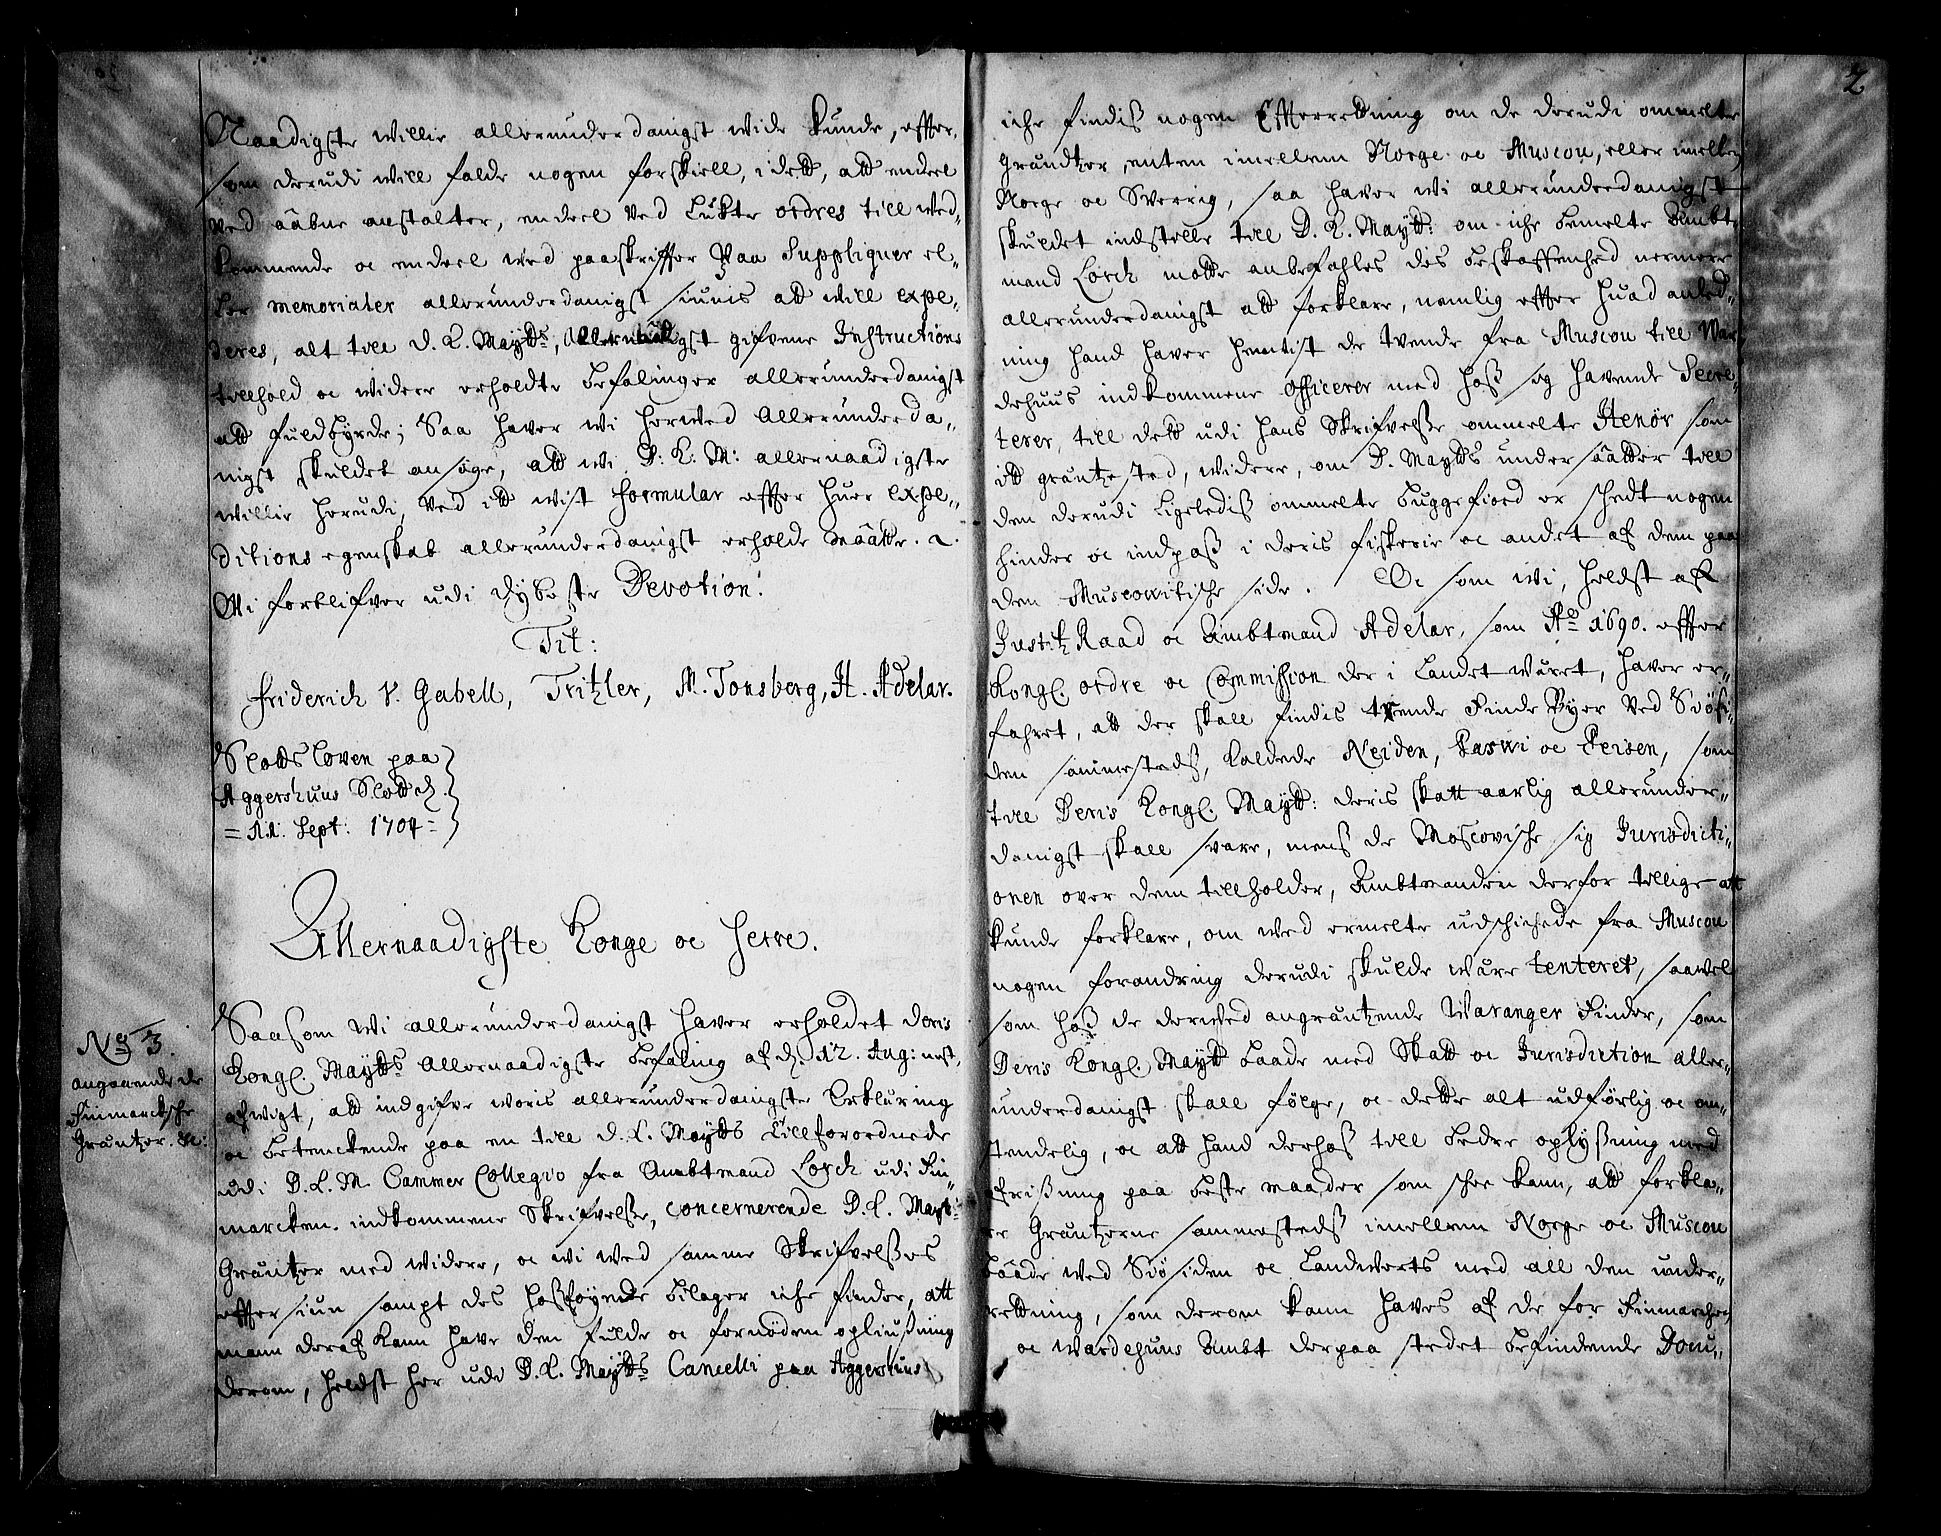 Naadigste Willie allerunderdanigst wide kunde, effter,
som derudi will falde nogen forskiell, i dett, att endeel
ved aabne anstalter, endeel ved Lukte ordres till wed-
kommende oc endeel wed paaskriffter Paa Suppliquer el-
ler memorialer allerunderdanigst siunis att will expe-
deres, alt till D. K. Mayts, Allernaadigst gifvene Instructions
tillhold oc widere erholdte befalinger allerunderdanigst
att fuldbyrde; Saa haver wi herwed Allerunderda-
nigst skuldet ansøge, att wi D: K: M: allernaadigste
willie herudi, Ved itt wist formular effter huer expe-
ditions egenskab allerunderdanigst erholde maatte. ~.
Wi forblifver udi dybeste Devotion!
Tit:
Friderich V. Gabell, Tritzler, M. Tonsberg, H. Adelar.
Slotts loven paa
Aggershuus Slott d.
= 11: Sept: 1704 =
Allernaadigste Konge oc Herre.
No 3.
angaaende de
Finmarckske
Gräntzer. &c:
Saasom Wi allerunderdanigst haver erholdet deris
Kongl. Maytts Allernaadigste befaling af d. 12. Aug: nest,
afwigt, att indgifve woris allerunderdanigste Erklæring
oc betenckende paa en till D. K. Maytts Tillforordnede
udi D. K. M. Cammer Collegio fra Ambtmand Lorck udi Fin-
marcken indkommene Skrifvelße, concernerende D. K. Mayt:
Gräntzer med widere, oc wi wed samme Skrifvelßes
effter siun sampt des hoßføyede bilager iche finder, att
mann deraf kann have den fulde oc fornøden opliußning
derom, heldst her udi D. K. Maytts Cancelli paa Aggershuus
2
iche findiß nogen Effterretning om de derudi ommelte
Gräntzer, enten imellem Norge oc Muscou, eller imellem
Norge oc Sverrig, saa haver wi allerunderdanigst
skuldet indstille till D. K. Maytt: om iche bemelte Ambt-
mand Lorck motte anbefahles des beskaffenhed nermere
allerunderdanigst att forklare, nemlig effter huad anled-
ning hand haver hentist de tvende fra Muscou till War-
dehuus indkommene Officerer med hoß sig havende Secre-
terer, till dett udi hans Skrifvelße ommelte Henør som
itt gräntzested, widere, om D. Maytts undersaatter till
den derudi Ligeledis ommelte Buggefiord er skedt nogen
hinder oc indpaß i deris fiskerie oc andet af dem paa
den Muscovitische side. Oc som wi, heldst af
Justitz Raad oc Ambtmand Adelar, som Ao 1690. effter
Kongl. ordre oc Commission der i Landet wäret, haver er-
fahret, att der skall findis tvende Finde Byer Ved Siøsi-
den sammesteds, kaldede Neiden, Paswi oc Peisen, som
till Deris Kongl. Maytt: deris skatt aarlig allerunder-
danigst skall svare, mens de Moscovische sig Jurisdicti-
onen over dem tillholder, Ambtmanden derfor tillige att
kunde forklare, om wed ermelte udschickede fra Muscou
nogen forandring derudi skulde wäre tenteret, saavel
som hoß de derwed angräntzende Waranger Finder, som
Deris Kongl. Maytt baade med Skatt oc Jurisdiction aller-
underdanigst skall følge, oc dette alt udførlig oc om-
stendelig, oc att hand derhoß till bedre oplyßning med
afrißning paa beste maader som schee kann, att forkla-
re Gräntzerne sammesteds imellem Norge oc Muscou
baade wed Siøsiden oc Landwerts med all den under-
retning, som derom kann haves af de for Finmarchen
oc Wardehuus Ambt derpaa stedet befindende Docu-